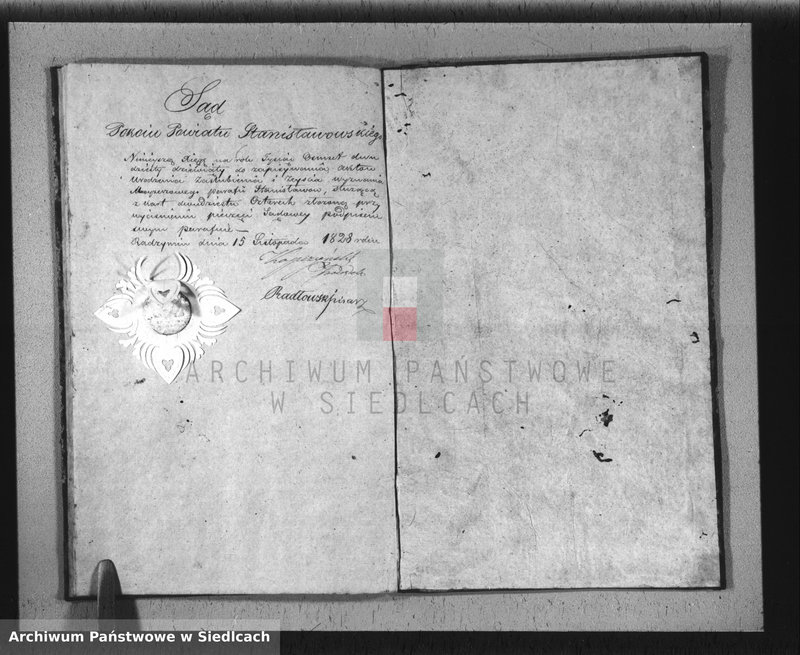 Sąd
Pokoiu Powiatu Stanisławowskiego
Ninieyszą Xięgę na rok Tysiąc Osmset dwu
dziesty dziewiąty do zapisywania aktów
Urodzenia Zaślubienia i Zeyścia wyznania
Moyżeszowego parafii Stanisławow, służącą
z kart dwudziestu Czterech złożoną przy
wyciśnieniu pieczęci Sądowey podpisem
swym parafuie —
Radzymin dnia 15 Listopada 1828 roku
Radłowski pisarz
ARCHIWUM PAŃSTWOWE
W SIEDLCACH
Archiwum Państwowe w Siedlcach